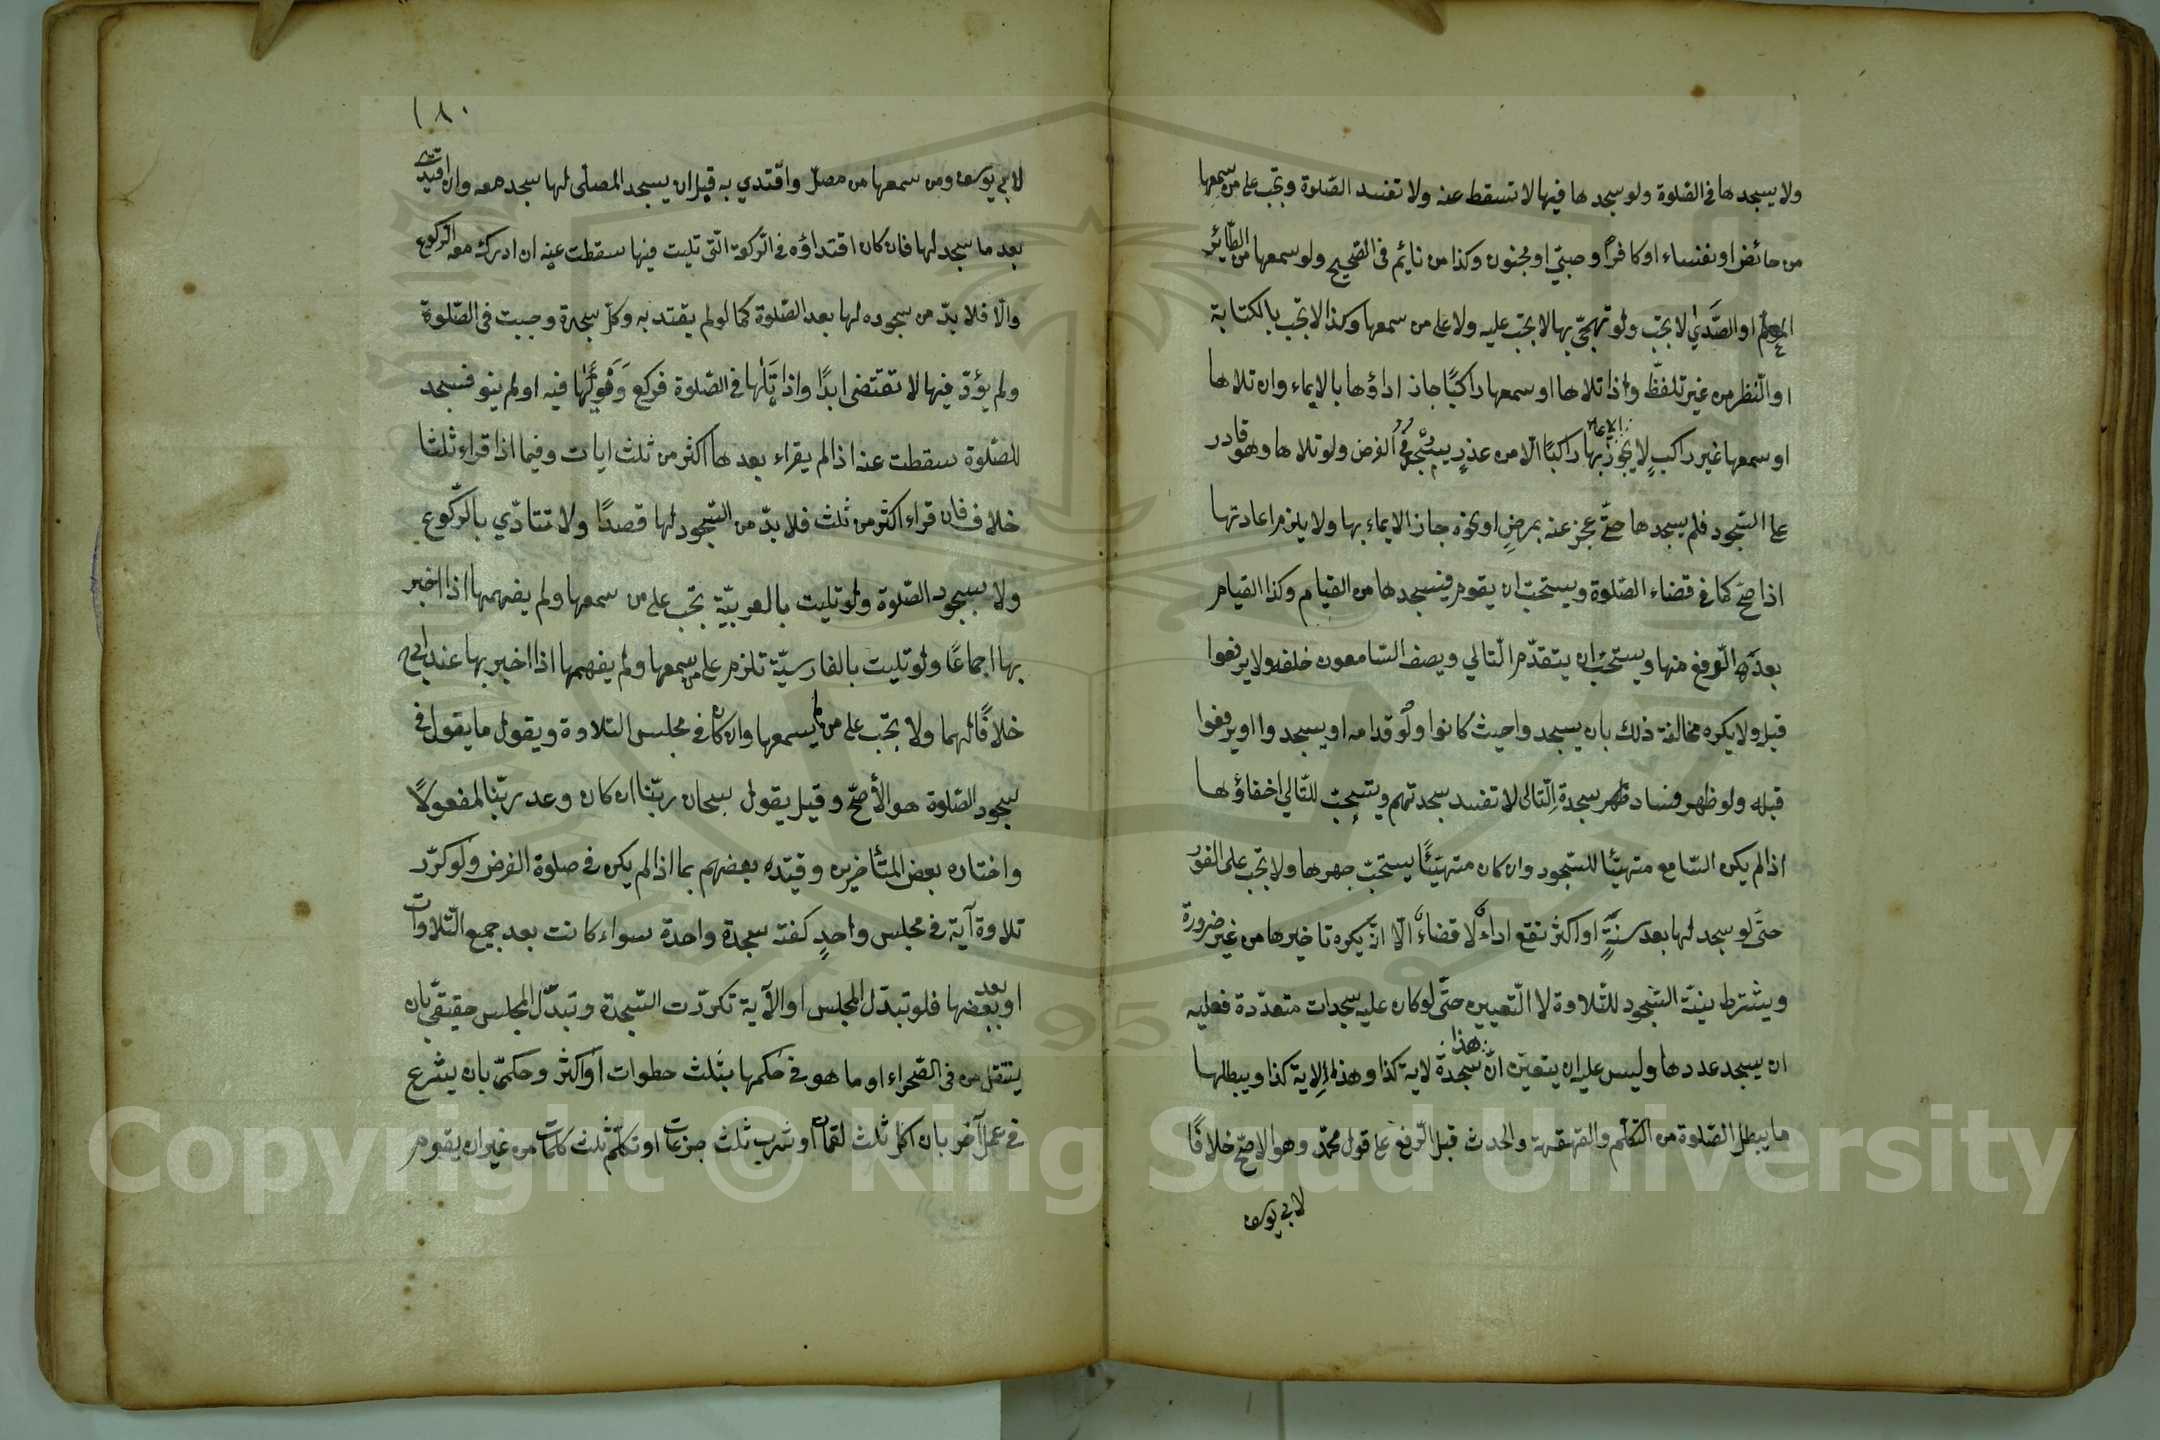 ولا يسجدها في الصلوة ولو سجدها فيها لا تسقط عنه ولا تفسد الصّلوة وتجب على من سمعها
من حائض او نفساء او كافرا وصبيّ او مجنون وكذا من نايم في الصّحيح ولو سمعها من الطّائر
المعلم او الصّدي لا تجب ولو تهجّى بها لا يجب عليه ولا على من سمعها وكذا لا تجب بالكتابة
او النّظر من غير تلفّظ واذا تلاها او سمعها راكبًا جاز اداؤها بالايماء وان تلاها
او سمعها غير راكبٍ لا يجوز بها راكبًا الّا من عذرٍ الفرض ولو تلاها وهو قادر
على السّجود فلم يسجدها حتّى عجز عنه بمرضٍ او نحوه جاز الايماء بها ولا يلزم اعادتها
اذا صحّ كما في قضاء الصّلوة ويستحبّ ان يقوم فيسجدها من القيام وكذا القيام
بعد الرّفع منها ويستحبّ ان يتقدّم التّالي ويصف السّامعون خلفه ولا يرفعوا
قبله ولا يكره مخالفة ذلك بان يسجدوا حيث كانوا ولو قدامه او يسجدوا او يرفعوا
قبله ولو ظهر فساد سجدة التّالى لا تفسد سجدتهم ويستحبّ للتّالي اخفاؤها
اذا لم يكن السّامع متهيّئا للسّجود وان كان متهيّئًا يستحبّ جهرها ولا تجب على الفور
حتّى لو سجد لها بعد سنةٍ او اكثر تقع اداءً لا قضاءً الّا انّه يكره تاخيرها من غير ضرورة
ويشترط نيّة السّجود للتّلاوة لا التّعيين حتّى لو كان عليه سجدات متعدّدة فعليه
ان يسجد عددها وليس عليه ان يتعيّن انّ هذا سجدة لاية كذا وهذا لاية كذا ويبطلها
ما يبطل الصّلوة من التّكلّم والقهقهة والحدث قبل الرّفع على قول محمّد وهو الاصحّ خلافًا
لابي يوسف
١٨٠
لابي يوسف ومن سمعها من مصلّ واقتدي به قبل ان يسجد المصلّى لها سجد معه وان اقتدى
بعد ما سجد لها فان كان اقتداؤه في الرّكعة الّتى تليت فيها سقطت عنه ان ادرك معه الرّكوع
والّا فلا بدّ من سجوده لها بعد الصّلوة كما لو لم يقتد به وكلّ سجدة وجبت في الصّلوة
ولم يؤدّ فيها لا تقتضى ابدًا واذا تلاها في الصّلوة فركع فيه او لم ينو فسجد
للصّلوة سقطت عنه اذا لم يقراء بعدها اكثر من ثلث ايات وفيما اذا قراء ثلثا
خلاف فان قراء اكثر من ثلث فلا بدّ من السّجود لها قصدًا ولا تتادّي بالرّكوع
ولا بسجود الصّلوة ولو تليت بالعربيّة تجب على من سمعها ولم يفهمها اذا اخبر
بها اجماعًا ولو تليت بالفارسيّة تلزم على من سمعها ولم يفهمها اذا اخبر بها عند ابي ح
خلافًا لهما ولا تجب على من لم يسمعها وان كان في مجلس التلاوة ويقول ما يقول في
سجود الصّلوة هو الأصحّ وقيل يقول سبحان ربّنا ان كان وعد ربّنا لمفعولًا
واختاره بعض المتأخرين وقيّده بعضهم بما اذا لم يكن في صلوة الفرض ولو كرّر
تلاوة آية في مجلس واحدٍ كفته سجدة واحدة سواء كانت بعد جميع التّلاوات
او بعد بعضها فلو تبدّل المجلس او الآية تكرّرت السّجدة وتبدّل المجلس حقيقيّ بان
ينتقل من فى الصّحراء او ما هو في حكمها بثلث خطوات او اكثر وحكميّ بان يشرع
في عمل آخر بان اكل ثلث لقمات او شرب ثلث جرعات او تكلّم ثلث كلمات من غير ان يقوم
Copyright © King Saud University
1957